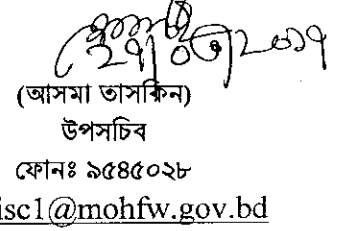 (আসমা তাসকিন)
উপসচিব
ফোনঃ ৯৫৪৫০২৮
isc1@mohfw.gov.bd